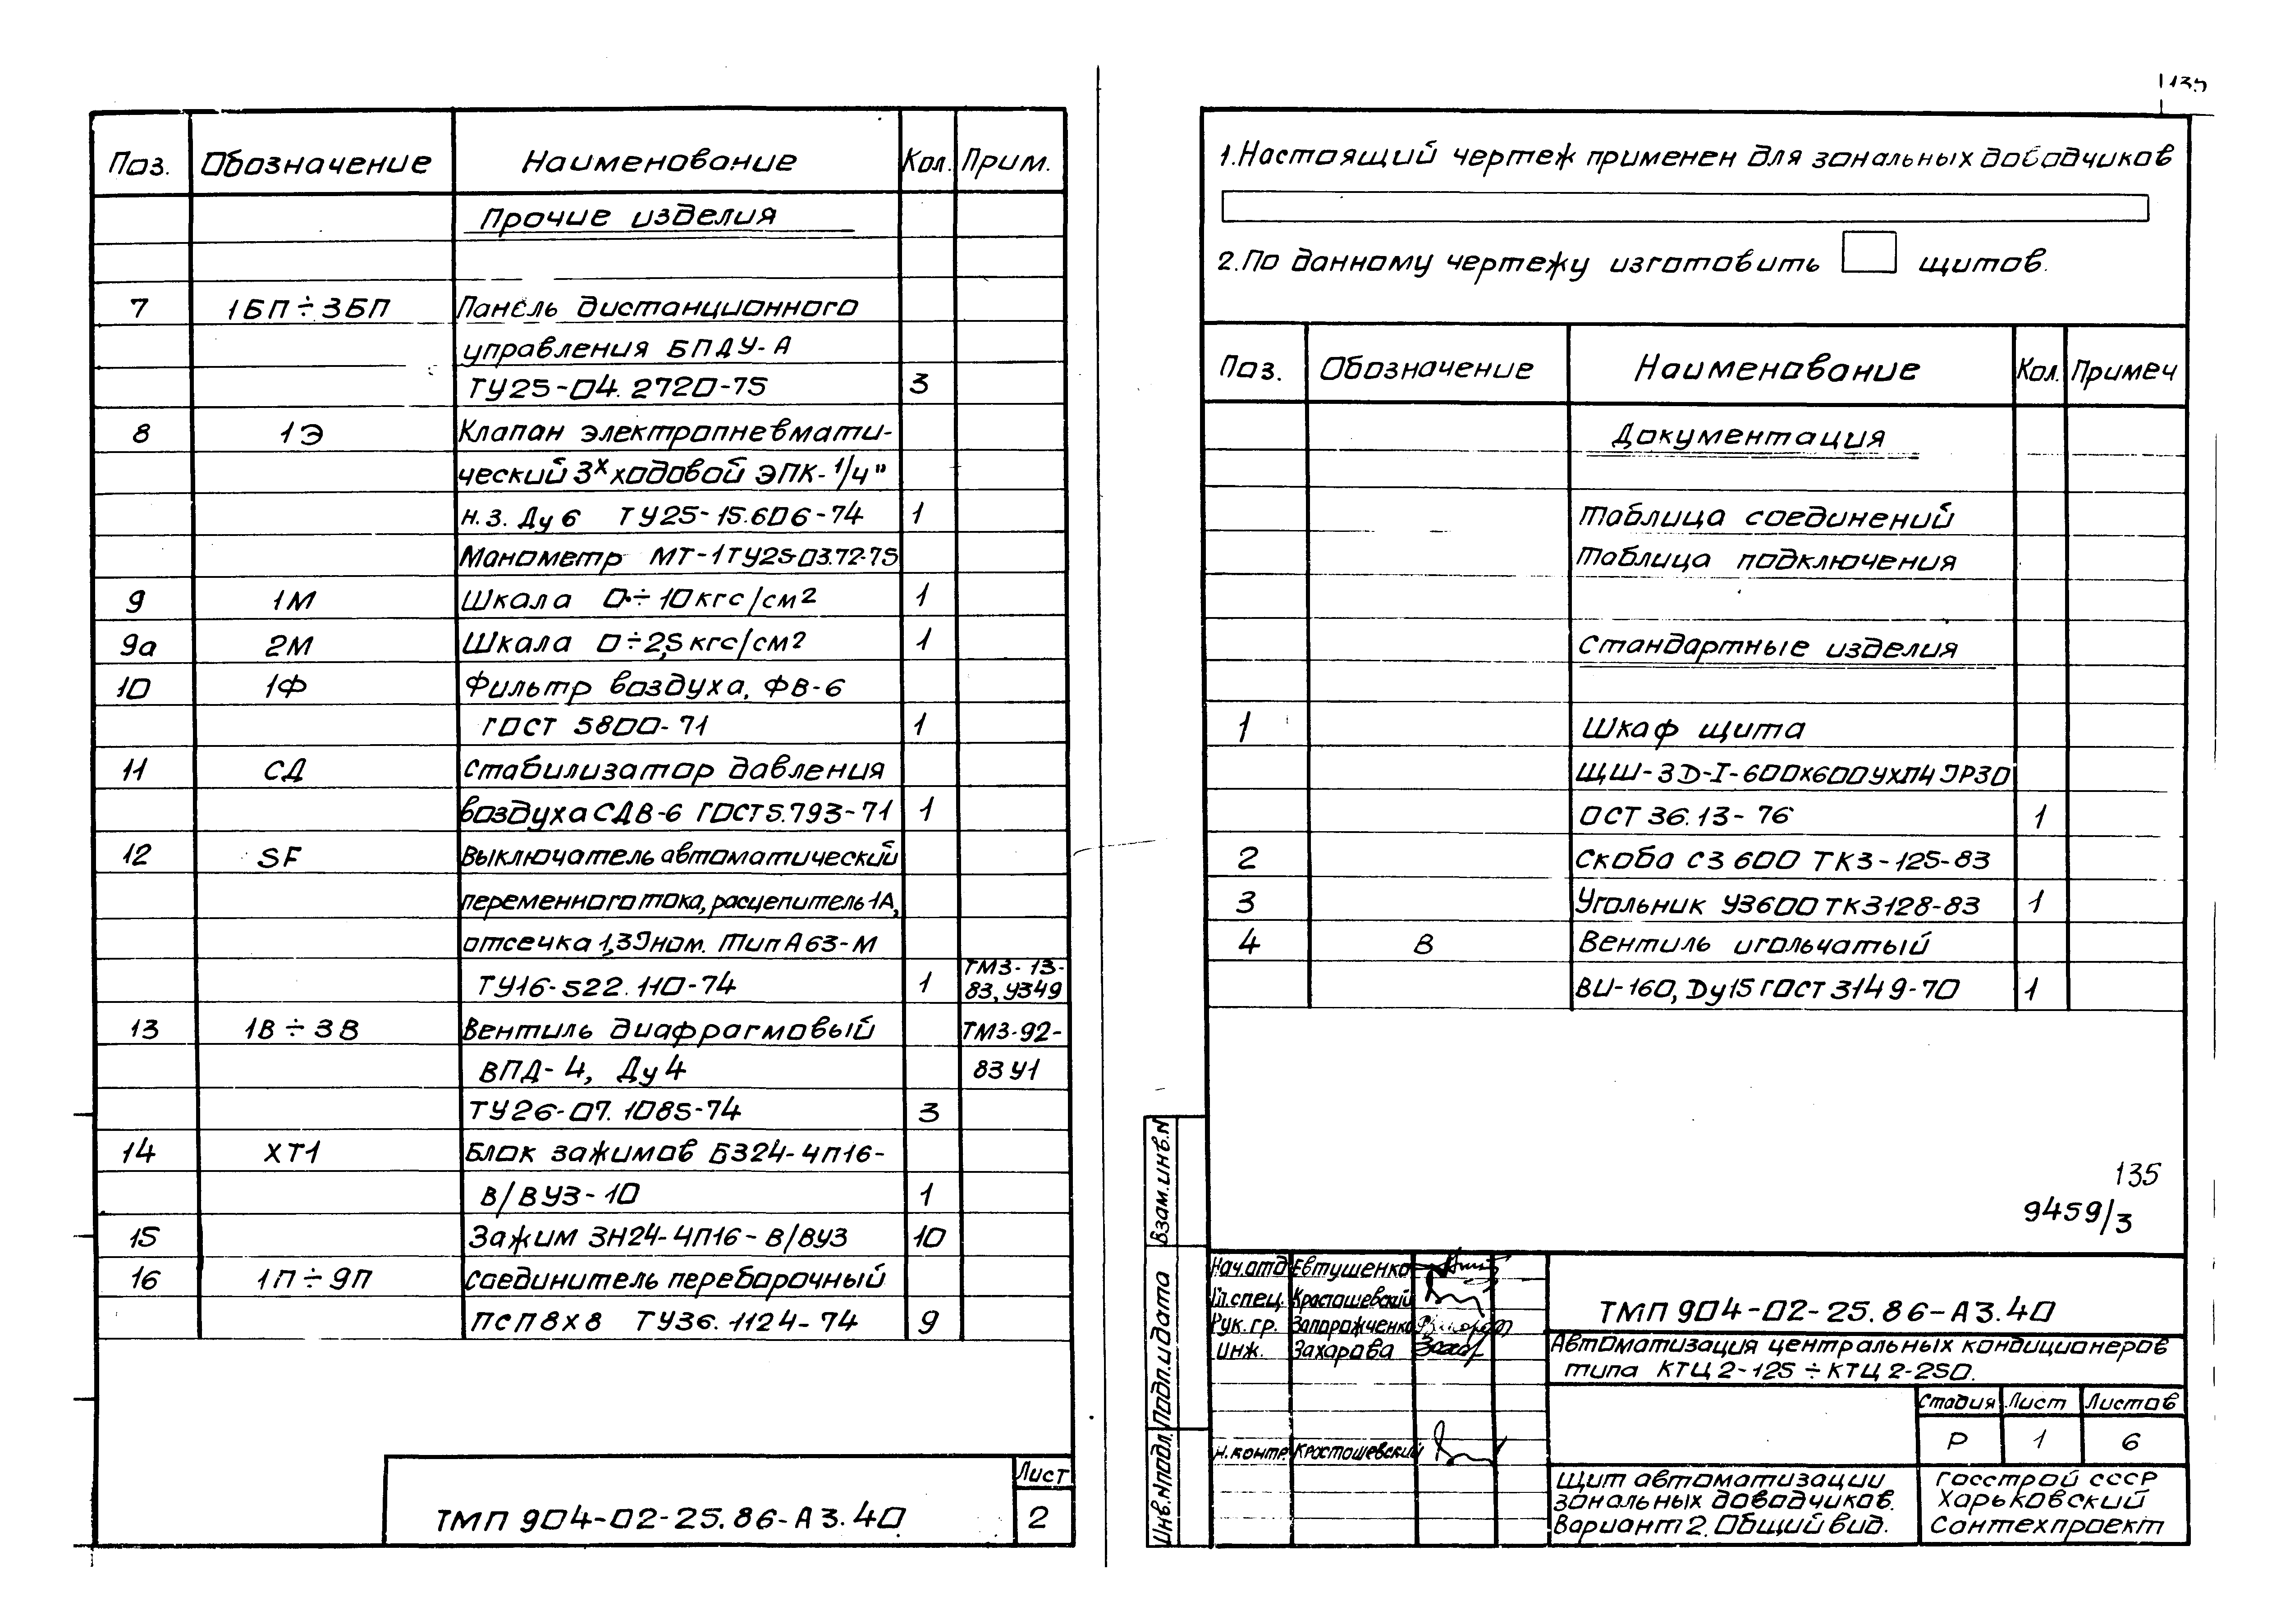 Поз. Обозначение Наименование Кол. Прим.
Прочие изделия
7 1БП÷3БП Панель дистанционного
управления БПДУ-А
ТУ25-04.2720-75 3
8 1Э Клапан электропневмати-
ческий 3х ходовой ЭПК-1/4"
н.з. Ду 6 ТУ25-15.606-74 1
Манометр МТ-1ТУ25-03.72-75
9 1М Шкала 0÷10кгс/см2 1
9а 2М Шкала 0÷2,5кгс/см2 1
10 1Ф Фильтр воздуха, ФВ-6
ГОСТ 5800-71 1
11 СД Стабилизатор давления
воздуха СДВ-6 ГОСТ5.793-71 1
12 SF Выключатель автоматический
переменного тока, расцепитель 1А,
отсечка 1,3Iном. Тип А63-М
ТУ16-522.110-74 1 ТМ3-13-
83, У349
13 1В÷3В Вентиль диафрагмовый ТМ3-92-
ВПД-4, Ду4 83 У1
ТУ26-07.1085-74 3
14 ХТ1 Блок зажимов БЗ24-4П16-
В/ВУ3-10 1
15 Зажим ЗН24-4П16-В/ВУ3 10
16 1П÷9П Соединитель переборочный
ПСП8х8 ТУ36.1124-74 9
Лист
ТМП 904-02-25.86-А3.40 2
135
1. Настоящий чертеж применен для зональных доводчиков
2. По данному чертежу изготовить щитов.
Поз. Обозначение Наименование Кол. Примеч
Документация
Таблица соединений
Таблица подключения
Стандартные изделия
1 Шкаф щита
ЩШ-ЗД-I-600х600УХЛ4 IР30
ОСТ 36.13-76 1
2 Скоба С3 600 ТК3-125-83
3 Угольник У3600 ТК3128-83 1
4 В Вентиль игольчатый
ВИ-160, Ду15 ГОСТ 3149-70 1
135
9459/3
Взам.инв.N
Подп.и дата
Инв.Nподл.
Нач.отд Евтушенко
Гл.спец. Красташевский
Рук.гр. Запорожченко
инж. Захарова
Н.контр. Красташевский
ТМП 904-02-25.86-А3.40
Автоматизация центральных кондиционеров
типа КТЦ2-125÷КТЦ2-250.
Стадия Лист Листов
Р 1 6
Щит автоматизации
зональных доводчиков.
Вариант 2. Общий вид.
Госстрой СССР
Харьковский
Сантехпроект